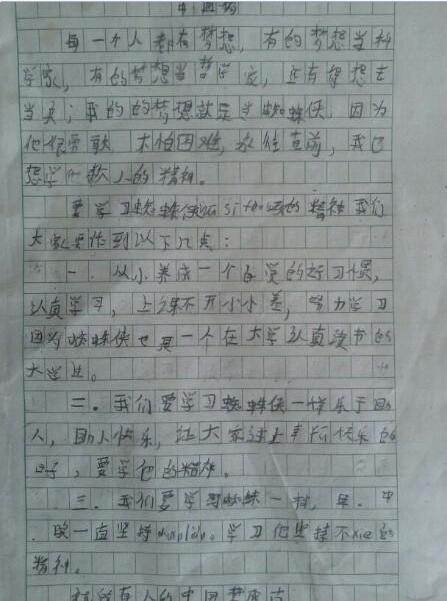 中国梦
每一个人都有梦想，有的梦想当科
学家，有的梦想当哲学家，还有梦想去
当兵；我的的梦想就是当蜘蛛侠，因为
他很勇敢，不怕困难，永往直前，我也
想学他救人的精神。
要学习蜘蛛侠的精神我们
大家要作到以下几点：
一．从小养成一个自觉的好习惯，
认真学习，上课不开小小差，努力学习
因为蜘蛛侠也是一个在大学认真读书的
大学生。
二．我们要学习蜘蛛侠一样乐于助
人，助人快乐，让大家过上幸福快乐的
日子，要学他的精神。
三．我们要学习蜘蛛一样，早．中
．晚一直坚持。学习他坚持不xie的
精神。